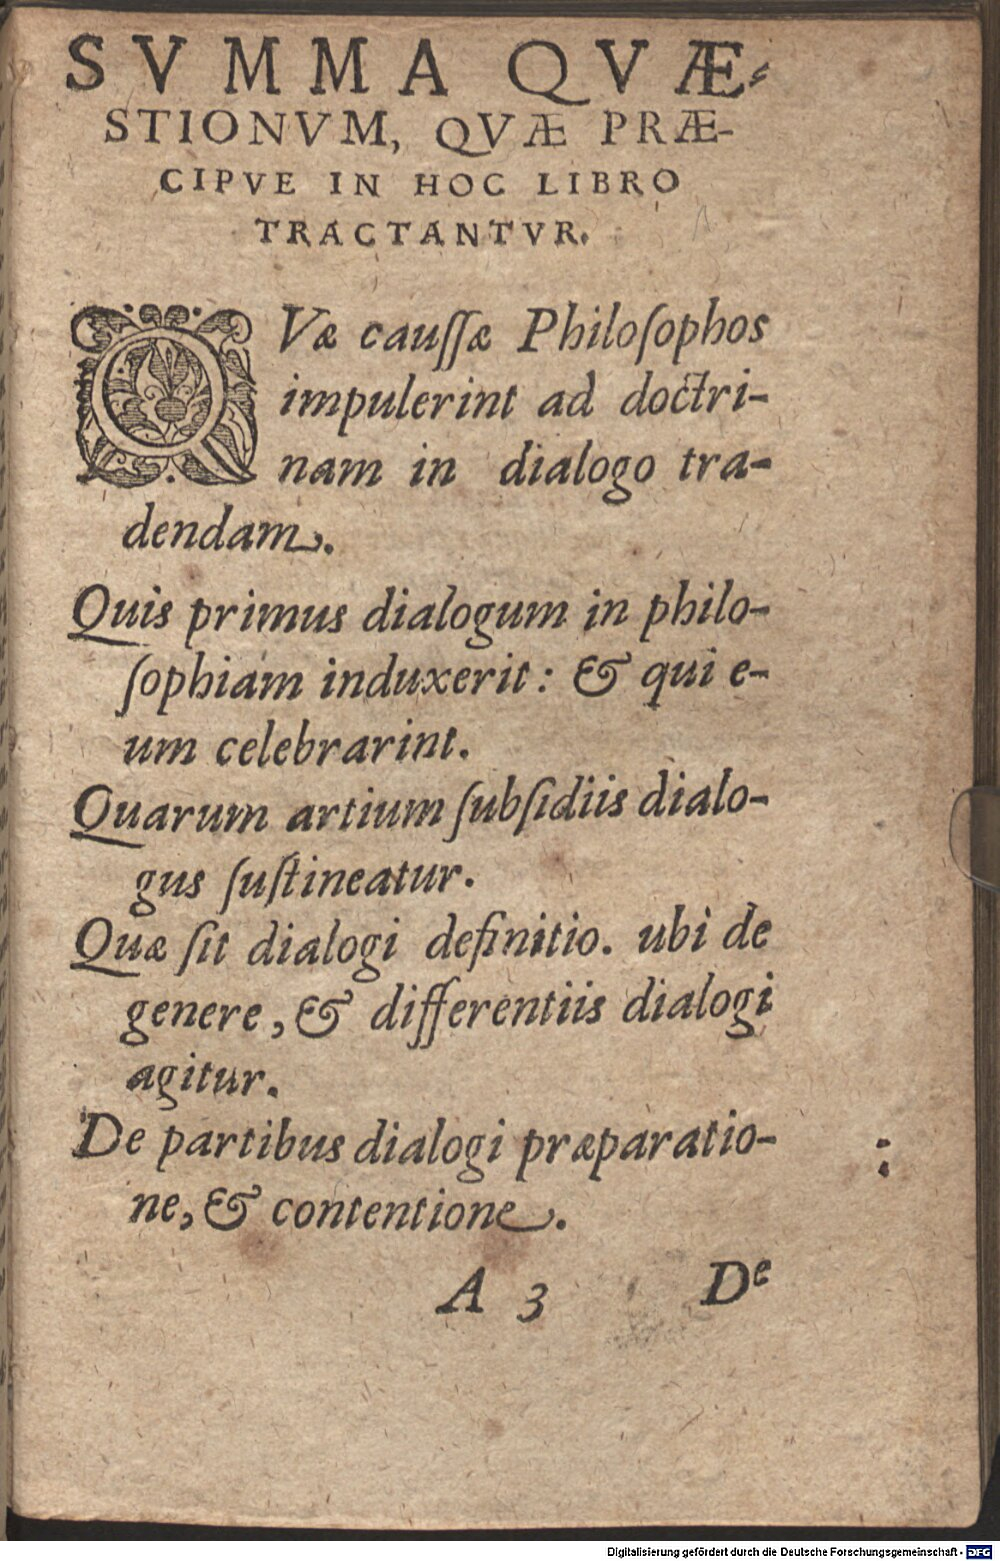 SVMMA QVÆ-
STIONVM, QVÆ PRÆ-
CIPVE IN HOC LIBRO
TRACTANTVR.
QVæ cauſſæ Philoſophos
impulerint ad doctri-
nam in dialogo tra-
dendam.
Quis primus dialogum in philo-
ſophiam induxerit: & qui e-
um celebrarint.
Quarum artium ſubſidiis dialo-
gus ſuſtineatur.
Quæ ſit dialogi definitio. ubi de
genere, & differentiis dialogi
agitur.
De partibus dialogi præparatio-
ne, & contentione.
A 3 De
Digitalisierung gefördert durch die Deutsche Forschungsgemeinschaft - DFG